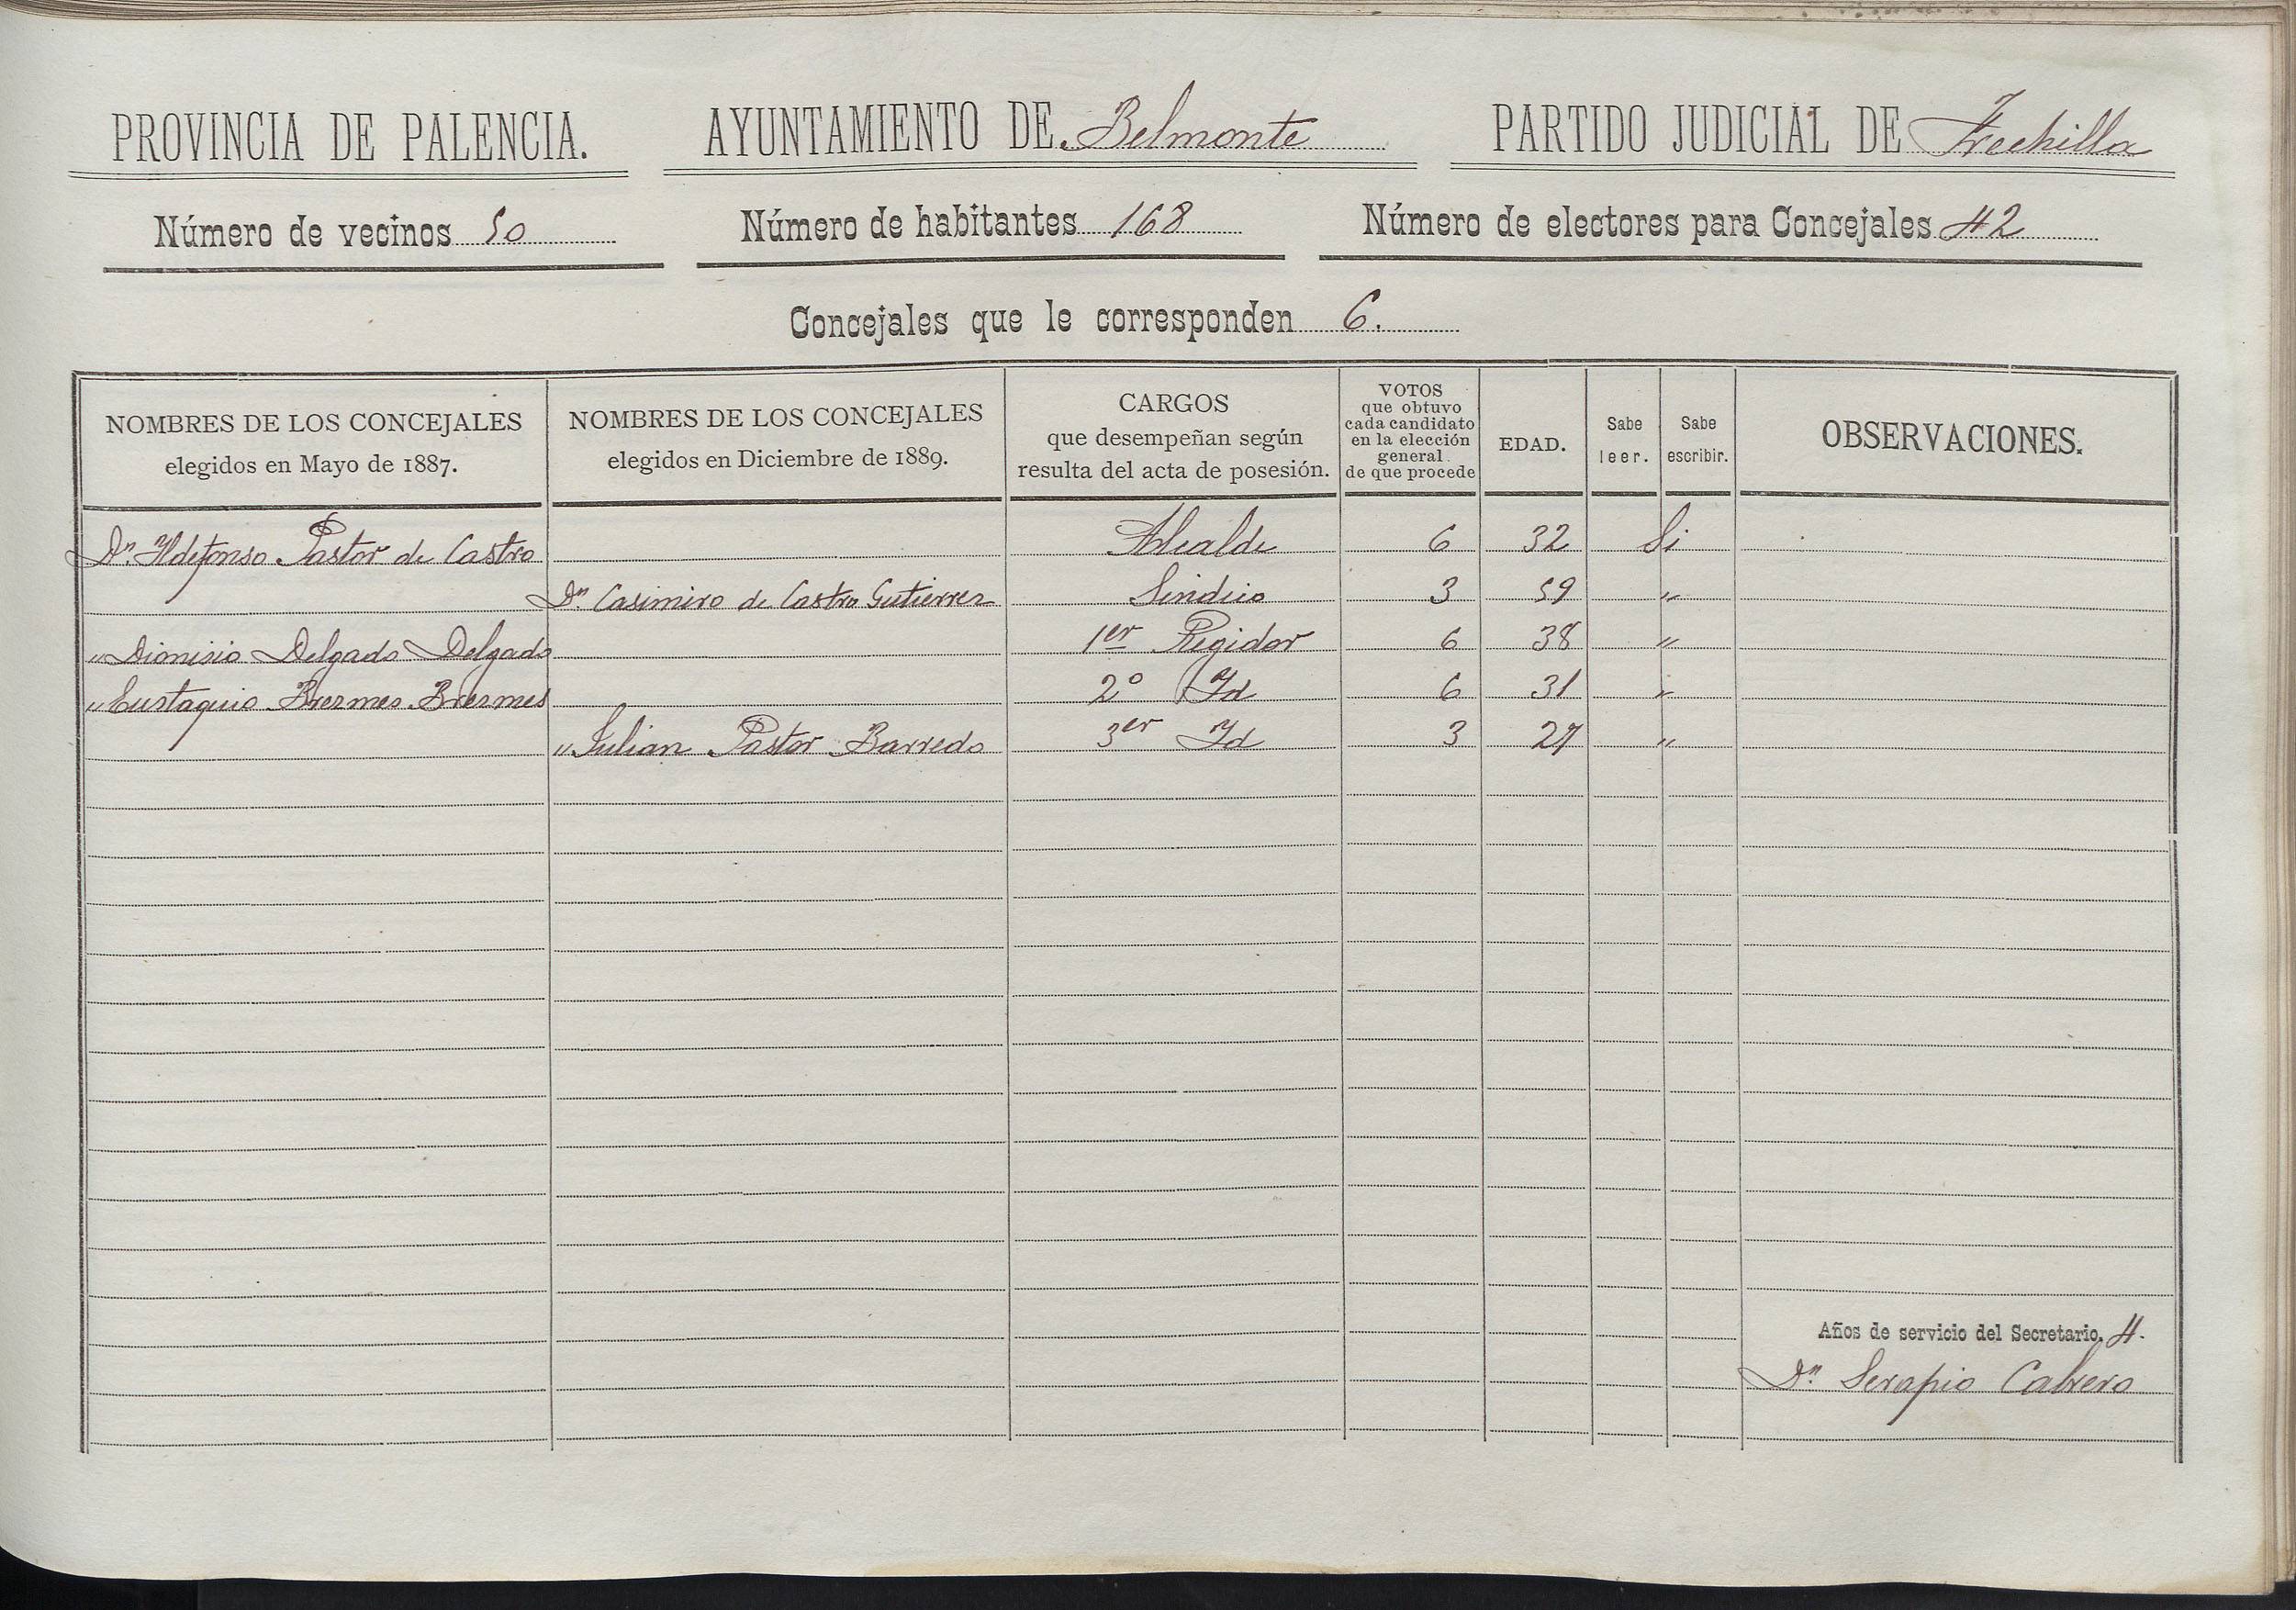 PROVINCIA DE PALENCIA. AYUNTAMIENTO DE Belmonte PARTIDO JUDICIAL DE Frechilla
Número de vecinos 50 Número de habitantes 168 Número de electores para Concejales 42
Concejales que le corresponden 6.
NOMBRES DE LOS CONCEJALES
elegidos en Mayo de 1887.
NOMBRES DE LOS CONCEJALES
elegidos en Diciembre de 1889.
CARGOS
que desempeñan según
resulta del acta de posesión.
VOTOS
que obtuvo
cada candidato
en la elección
general
de que procede
EDAD.
Sabe
leer.
Sabe
escribir.
OBSERVACIONES.
Dn. Ildefonso Pastor de Castro Alcalde 6 32 Si
Dn Casimiro de Castro Gutierrez Sindico 3 59 "
" Dionisio Delgado Delgado 1er Regidor 6 38 "
" Eustaquio Bresmes Bresmes 2º Id 6 31 "
" Julian Pastor Barreda 3er Id 3 27 "
Años de servicio del Secretario, 4.
Dn. Serapio Cabrero